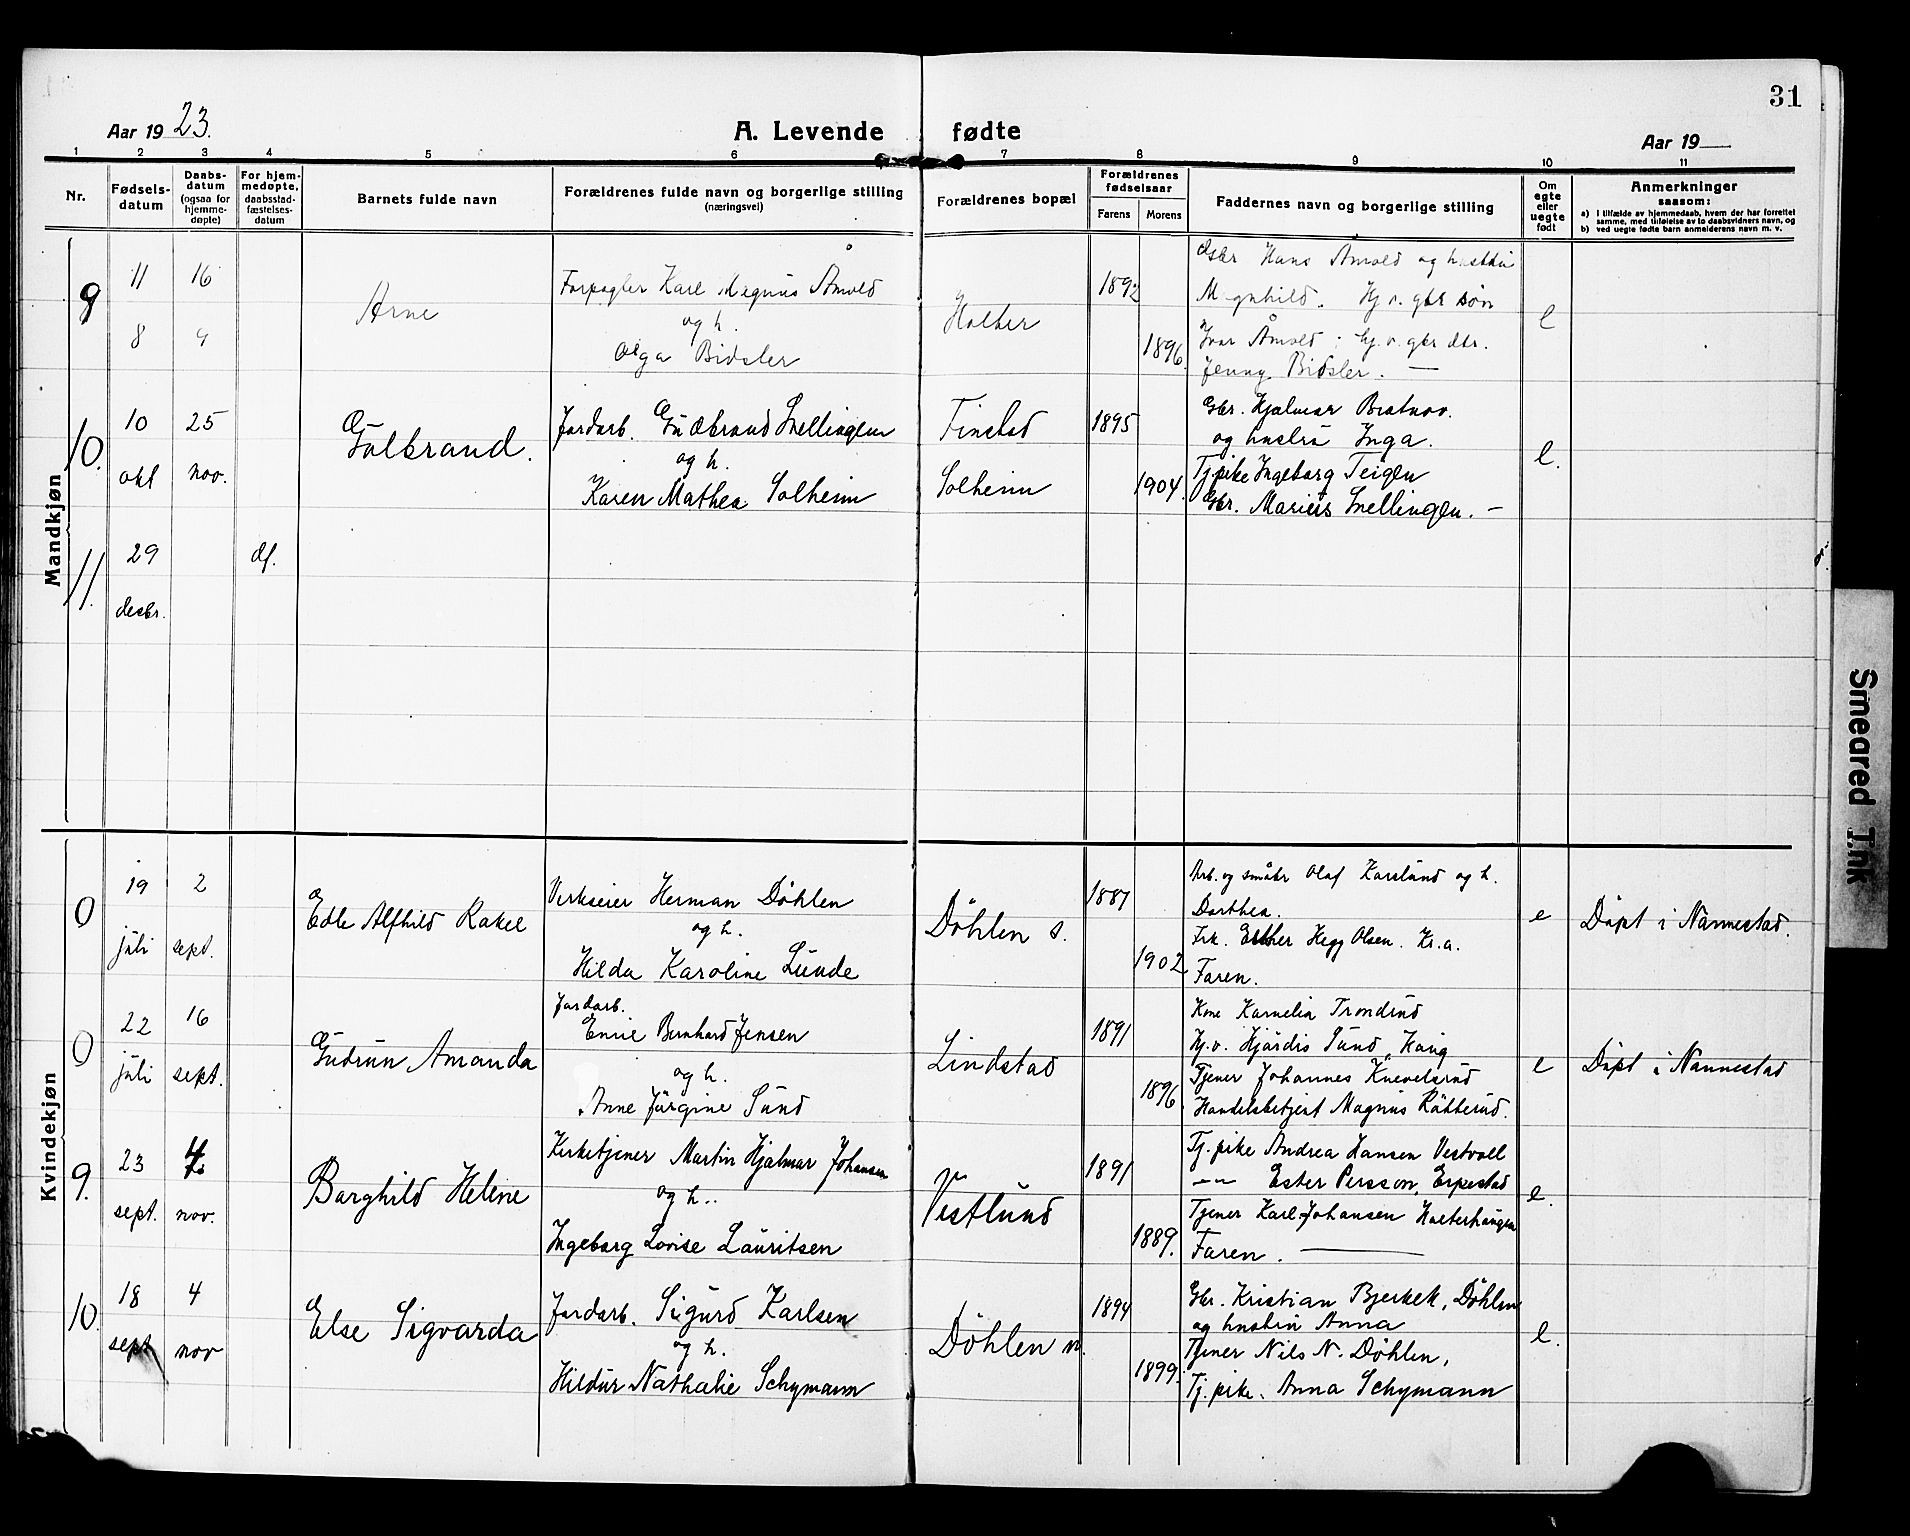 31
Aar 1923.
A. Levende fødte
Aar 19
1 2 3 4 5 6 7 8 9 10 11
Nr.
Fødselsdatum
Daabsdatum (ogsaa for hjemmedøpte)
For hjemmedøpte, daabsstadfæstelsesdatum
Barnets fulde navn
Forældrenes fulde navn og borgerlige stilling (næringsvei)
Forældrenes bopæl
Forældrenes fødselsaar
Farens
Morens
Faddernes navn og borgerlige stilling
Om egte eller uegte født
Anmerkninger saasom:
a) I tilfælde av hjemmedaab, hvem der har forrettet samme, med tilføielse av to daabsvidners navn, og
b) ved uegte fødte barn anmelderens navn m. v.
Mandkjøn
9
11 16
8 9
Arne
Forpagter Karl Magnus Åmold
og h.
Olga Bidsler
Holter
1892
1896.
Gbr Hans Åmold og hustru
Magnhild. Hj.v. gbr søn
Ivar Åmold; hj.v. gbr dtr.
Jenny Bidsler. —
e
10.
10 25
okt nov.
Gulbrand.
Jordarb. Gudbrand Snellingen
og h.
Karen Mathea Solheim
Finstad
Solheim
1895
1904.
Gbr. Hjalmar Bratnov.
og hustru Inga.
Tj.pike Ingeborg Teigen
Gbr. Marius Snellingen. —
e.
11.
29
desbr.
df.
Kvindekjøn
0
19 2
juli sept.
Edle Alfhild Rakel
Verkseier Herman Döhlen
og h.
Hilda Karoline Lunde
Döhlen s.
1887
1902
Arb. og småbr Olaf Karslund og h.
Dorthea.
Frk. Esther Hegg Olsen. Kr.a.
Faren.
e
Döpt i Nannestad.
0
22 16
juli sept.
Gudrun Amanda
Jordarb.
Enrie Bernhard Jensen
og h.
Anne Jörgine Sund
Lindstad
1891
1896.
Kone Karnelia Trondrud
Hj.v. Hjördis Sund, Haug
Tjener Johannes Knevelsrud
Handelsbetjent Magnus Råtterud.
e
Döpt i Nannestad
9.
23 4
sept. nov.
Borghild Helene
Kirketjener Martin Hjalmar Johansen
og h..
Ingeborg Lovise Lauritsen
Vestlund
1891
1889.
Tj. pike Andrea Hansen Vestvoll
—"— Ester Persson, Erpestad
Tjener Karl Johansen Holterhaugen
Faren. —
e.
10.
18 4
sept nov
Else Sigvarda
Jordarb. Sigurd Karlsen
og h.
Hildur Nathalie Schymann
Döhlen n.
1894
1899.
Gbr. Kristian Bjerkek, Döhlen
og hustru Anna
Tjener Nils N. Döhlen,
Tj. pike. Anna Schymann
e.
Smeared Ink